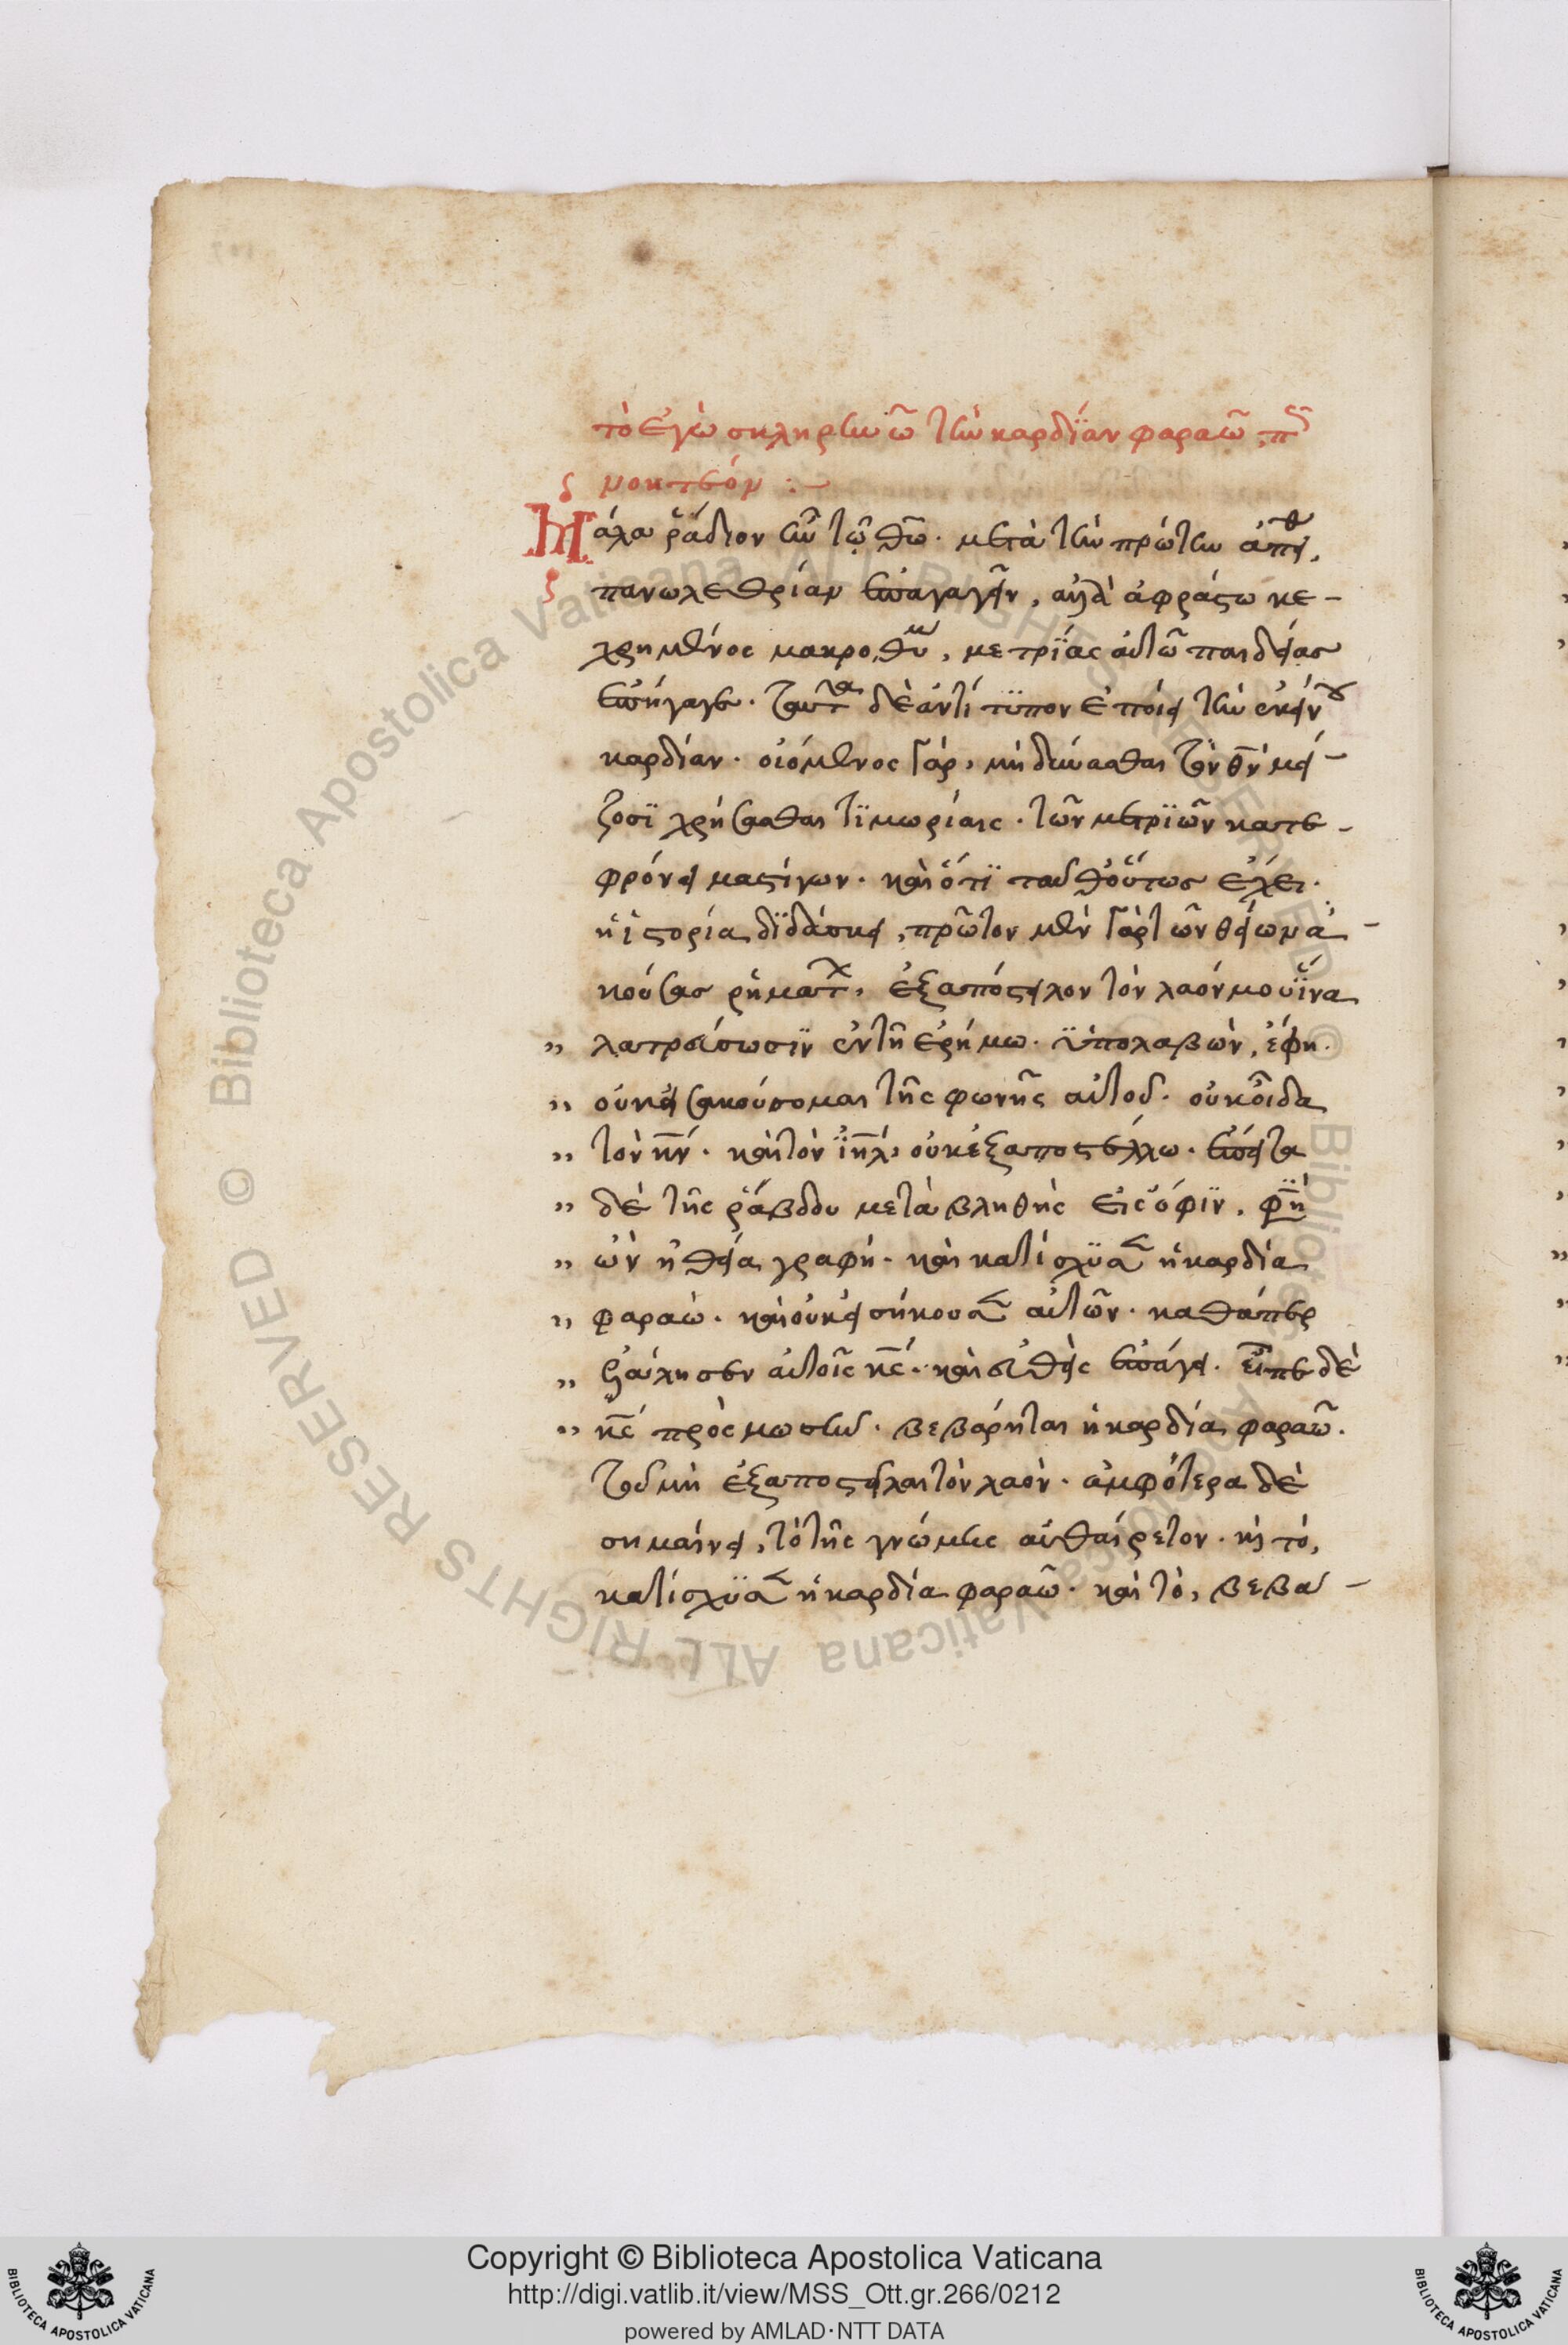 τὸ ἐγὼ σκληρυνῶ τὴν καρδΐαν φαραῶ, πῶς
ϛ μοητέομ :–
Μάλα ῥάδιον ἦν τῷ θῶ. μετὰ τὴν πρώτην ἀπειθ,
πανωλεθρίαμ ἐπαγαγεῖν, ἀλλ' ἀφράστω κε –
χρημένος μακροθυμ, μετρΐας αὐτῶ παιδείας
ἐπήγαγε. ταῦτα δὲ ἀντί τϋπον ἐποίει τὴν ἐκείνου
καρδίαν. οἰόμενος γάρ, μὴ δύνασθαι τὸν θν μεί –
ζοσϊ χρήσασθαι τϊμωρίαις. τῶν μετρϊῶν κατε –
φρόνει μαστίγων. καὶ ὅτϊ ταῦθ' οὕτως ἔχει.
ἡ ἱστορία δϊδάσκει, πρῶτον μὲν γὰρ τῶν θείωμ ἀ –
κούσας ρημάτ, ἐξαπόστειλον τὸν λαόν μου ἵνα
,, λατρεύσωσϊν ἐν τῆ ἐρήμω. ὑπολαβὼν, ἔφη.
,, οὐκ εἰσακούσομαι τῆς φωνῆς αὐτοῦ. οὐκ οἶδα
,, τὸν κν. καὶ τὸν ἰηλ, οὐκ ἐξαποστέλλω. ἔπειτα
,, δὲ τῆς ῥάβδου μεταβληθείς εἰς ὄφϊν.
,, ὠν ἡ θεία γραφή. καὶ κατίσχϋσεν ἡ καρδία
,, φαραὼ. καὶ οὐκ εἰσήκουσεν αὐτῶν. καθάπερ
,, ἐλάλησεν αὐτοῖς κς. καὶ εὐθὺς ἐπάγει. εἶπε δὲ
,, κς πρὸς μωσῆν. βεβάρηται ἡ καρδία φαραῶ.
τοῦ μὴ ἐξαποστεῖλαι τὸν λαόν. ἀμφότερα δὲ
σημαίνει, τὸ τῆς γνώμης αὐθαίρετον. κὶ τό,
κατίσχϋσεν ἡ καρδία φαραῶ. καὶ τὸ, βεβα –
Copyright © Biblioteca Apostolica Vaticana
http://digi.vatlib.it/view/MSS_Ott.gr.266/0212
powered by AMLAD·NTT DATA
BIBLIOTECA APOSTOLICA VATICANA
BIBLIOTECA APOSTOLICA VATICANA
© Biblioteca Apostolica Vaticana ALL RIGHTS RESERVED © Biblioteca Apostolica Vaticana ALL RIGHTS RESERVED